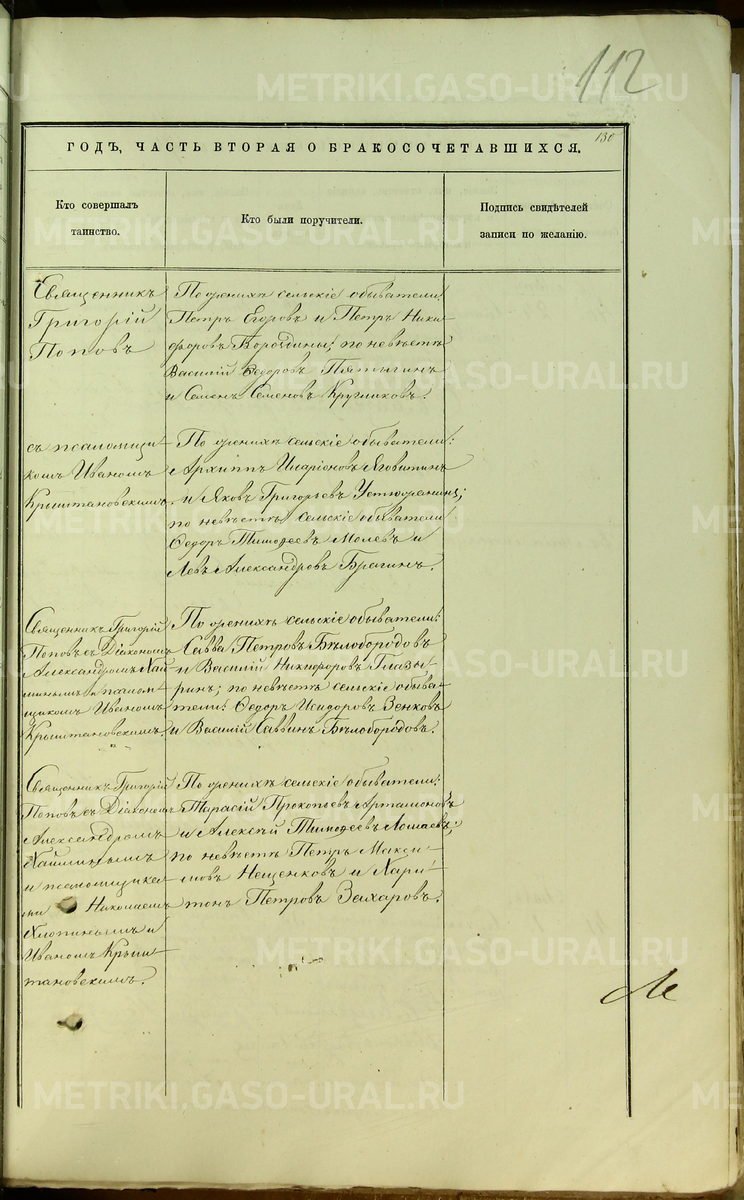 112
130
ГОДЪ, ЧАСТЬ ВТОРАЯ О БРАКОСОЧЕТАВШИХСЯ.
Кто совершалъ
таинство.
Кто были поручители.
Подпись свидѣтелей
записи по желанію.
Священникъ
Григорій
Поповъ
По женихѣ сельскіе обыватели
Петръ Егоровъ и Петръ Ники-
форовъ Бородины; по невѣстѣ
Василій Ѳедоровъ Пятыгинъ
и Семенъ Семеновъ Кругликовъ.
съ псаломщи-
комъ Иваномъ
Крыштановскимъ.
По женихѣ сельскіе обыватели:
Архиппъ Иларіоновъ Яговитинъ
и Яковъ Григорьевъ Устюжанинъ;
по невѣстѣ сельскіе обыватели
Ѳедоръ Тимофеевъ Молевъ и
Левъ Александровъ Брагинъ.
Священникъ Григорій
Поповъ съ Діакономъ
Александромъ
и псалом-
щикомъ Иваномъ
Крыштановскимъ.
По женихѣ сельскіе обыватели:
Савва Петровъ Бѣлобородовъ
и Василій Никифоровъ Глазы-
ринъ; по невѣстѣ сельскіе обыва-
тели: Ѳедоръ Исидоровъ Зенковъ
и Василій Саввинъ Бѣлобородовъ.
Священникъ Григорій
Поповъ съ Діакономъ
Александромъ
и псаломщика-
ми Николаемъ
Хлопинымъ и
Иваномъ Крыш-
тановскимъ.
По женихѣ сельскіе обыватели:
Тарасій Прокопьевъ Артамоновъ
и Алексѣй Тимофеевъ
по невѣстѣ Петръ Макси-
мовъ Нещенковъ и Хари-
тонъ Петровъ Захаровъ.
METRIKI.GASO-URAL.RU